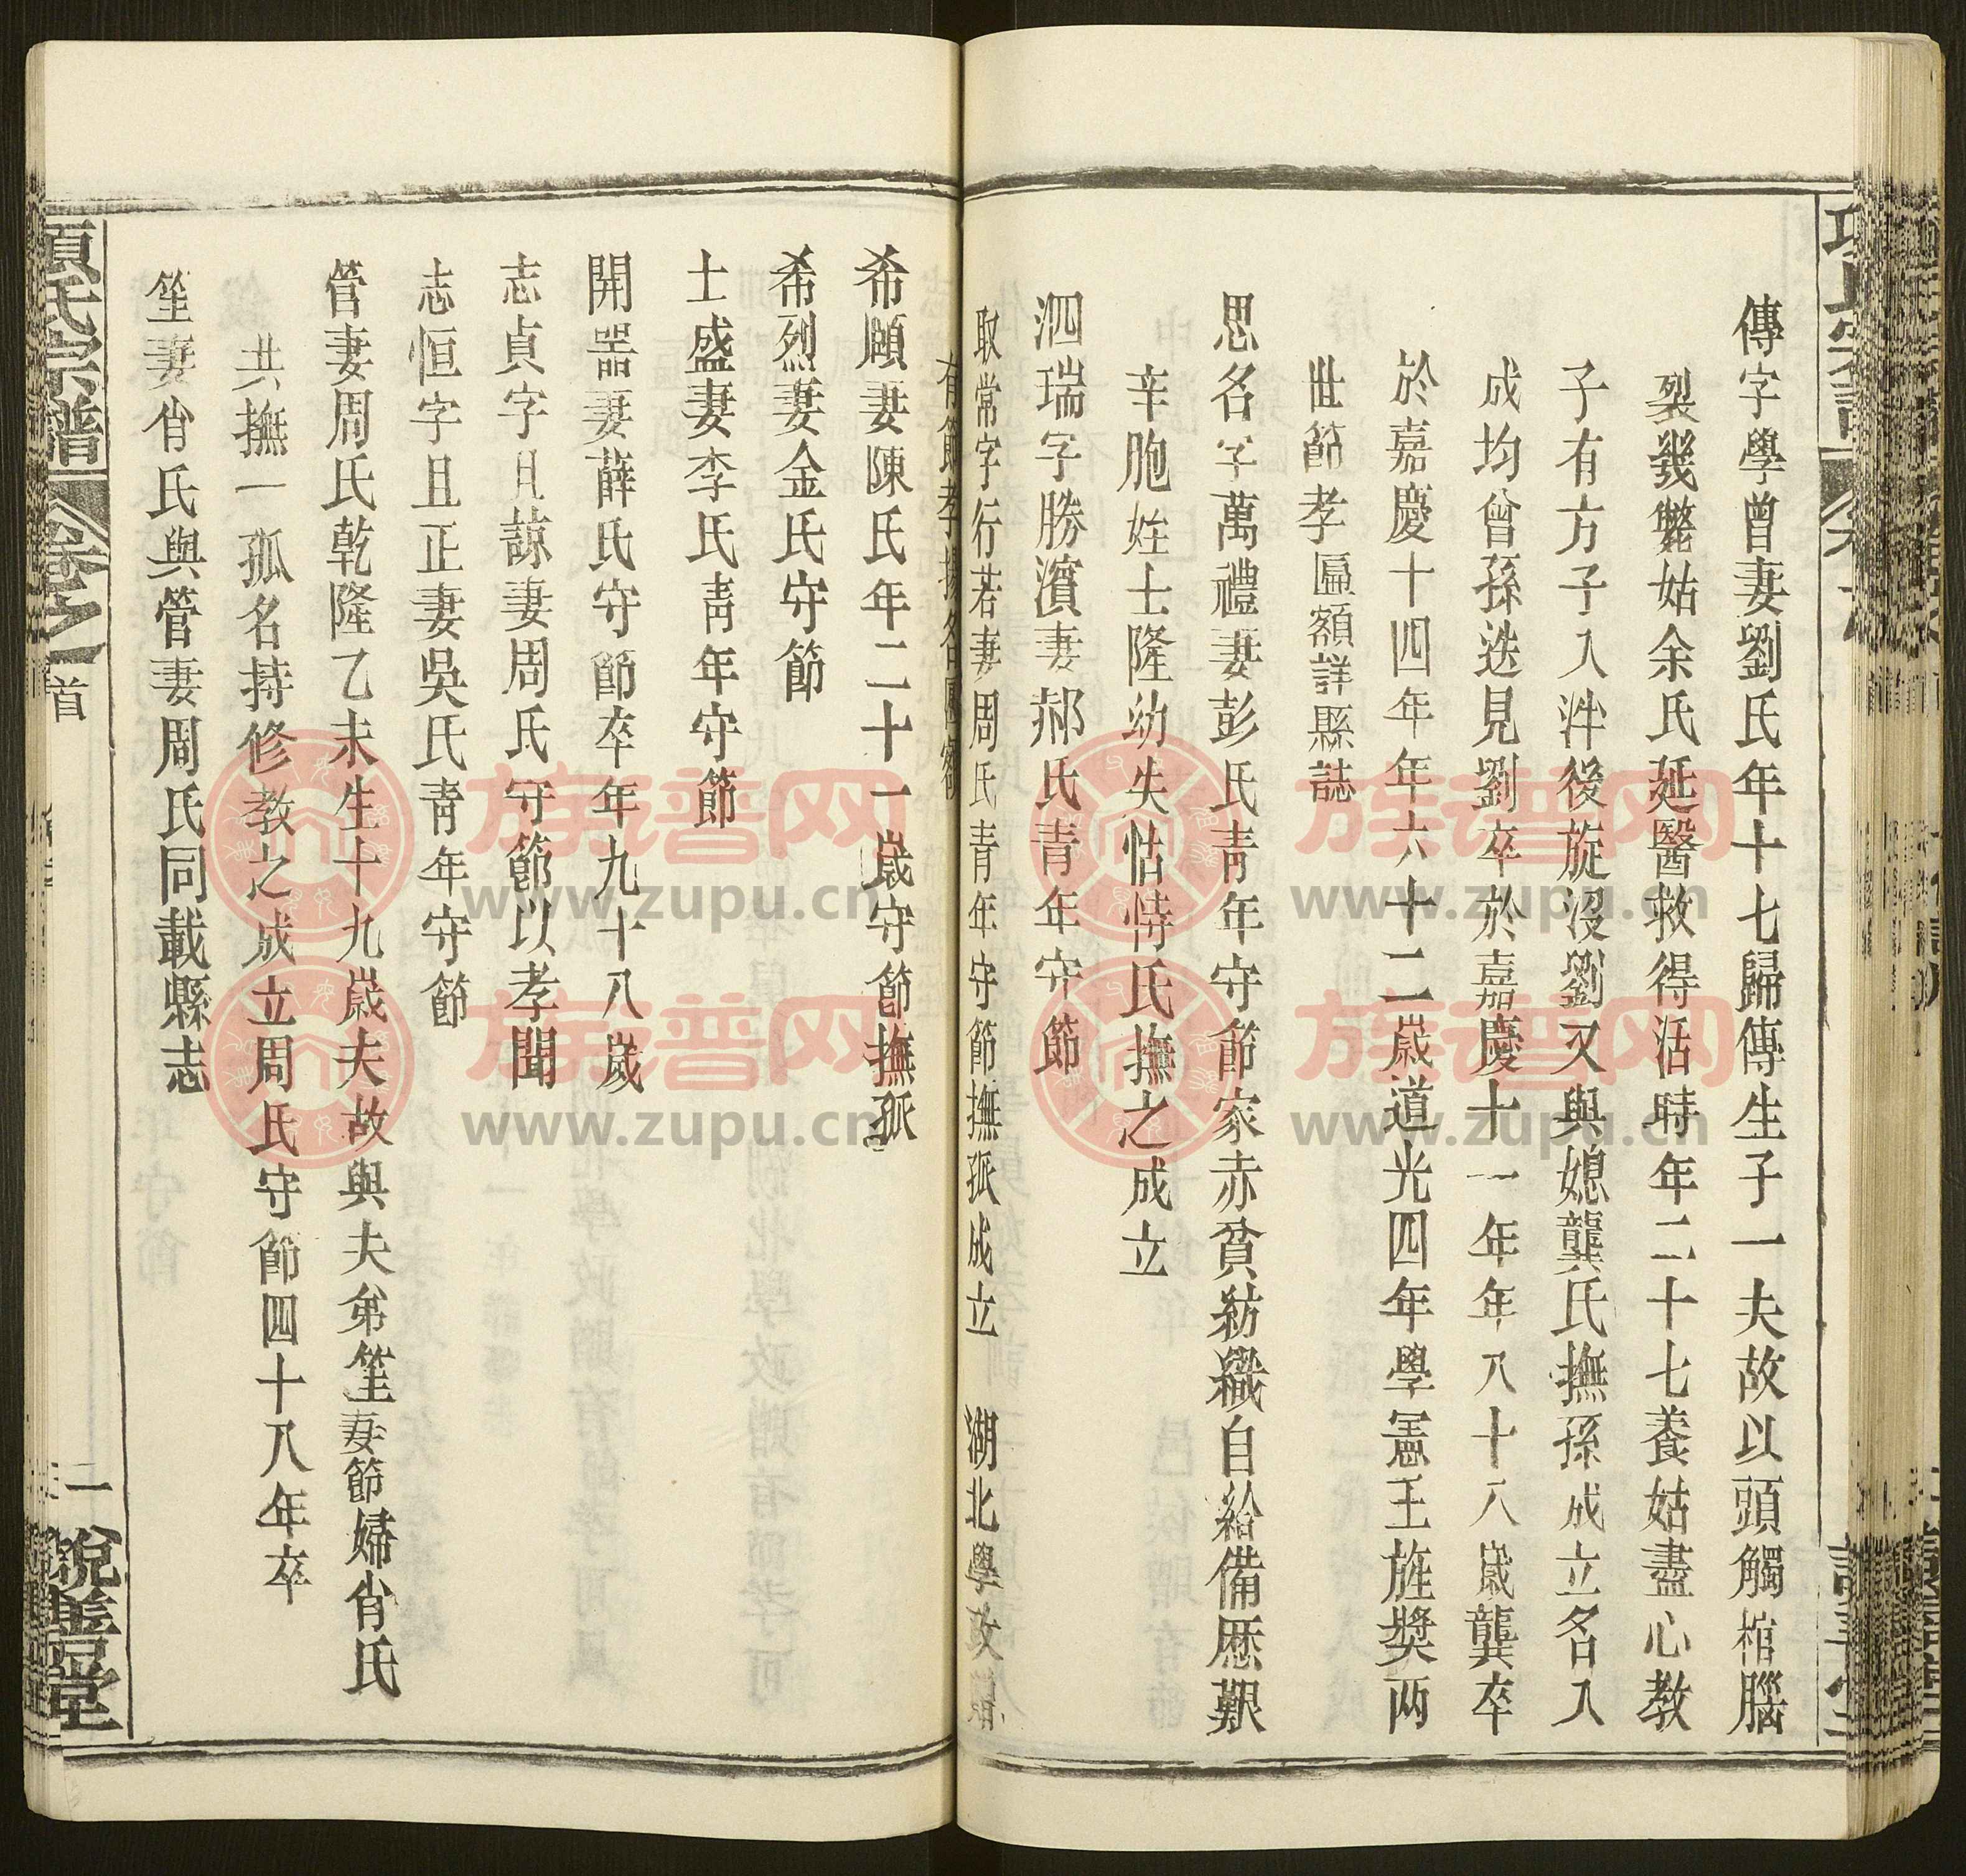 傳字學曾妻劉氏年十七歸傳生子一夫故以頭觸棺腦
裂幾斃姑余氏延醫救得活時年二十七養姑盡心教
子有方子入泮後旋沒劉又與媳龔氏撫孫成立名入
成均曾孫迭見劉卒於嘉慶十一年年八十八歲龔卒
於嘉慶十四年年六十二歲道光四年學憲王旌獎两
世節孝匾額詳縣誌
思名字萬禮妻彭氏靑年守節家赤貧紡織自給備歷艱
辛胞姪士隆幼失怙恃氏撫之成立
泗瑞字勝濱妻郝氏青年守節
取常字行若妻周氏青年守節撫孤成立 湖北學政
有節孝揚名匾額
希願妻陳氏年二十一歲守節撫孤
希烈妻金氏守節
士盛妻李氏靑年守節
開器妻薛氏守節卒年九十八歲
志貞字且諒妻周氏守節以孝聞
志恒字且正妻吳氏靑年守節
管妻周氏乾隆乙未生十九歲夫故與夫弟笙妻節婦肖氏
共撫一孤名持修教之成立周氏守節四十八年卒
笙妻肖氏與管妻周氏同載縣志
項氏宗譜 卷之一 首
二
說善堂
族谱网
www.zupu.cn
族谱网
www.zupu.cn
族谱网
www.zupu.cn
族谱网
www.zupu.cn